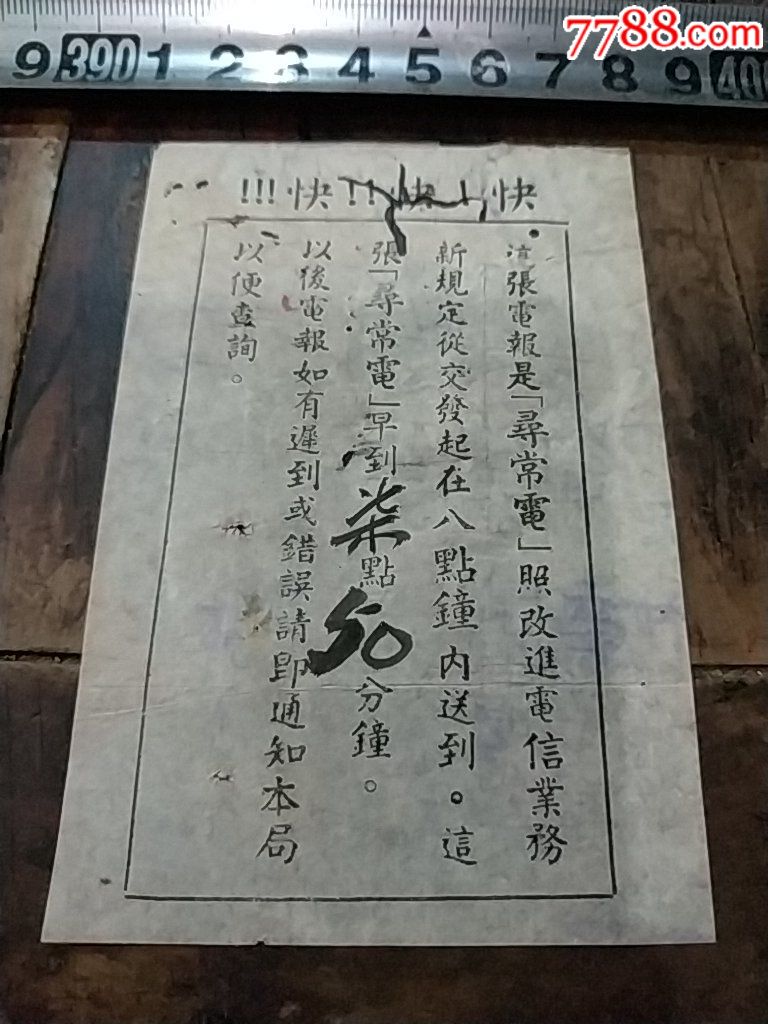 7788.com
9 390 1 2 3 4 5 6 7 8 9 400
快!快!!快!!!
這張電報是「尋常電」照改進電信業務
新規定從交發起在八點鐘內送到。這
張「尋常電」早到柒點50分鐘。
以後電報如有遲到或錯誤請即通知本局
以便查詢。